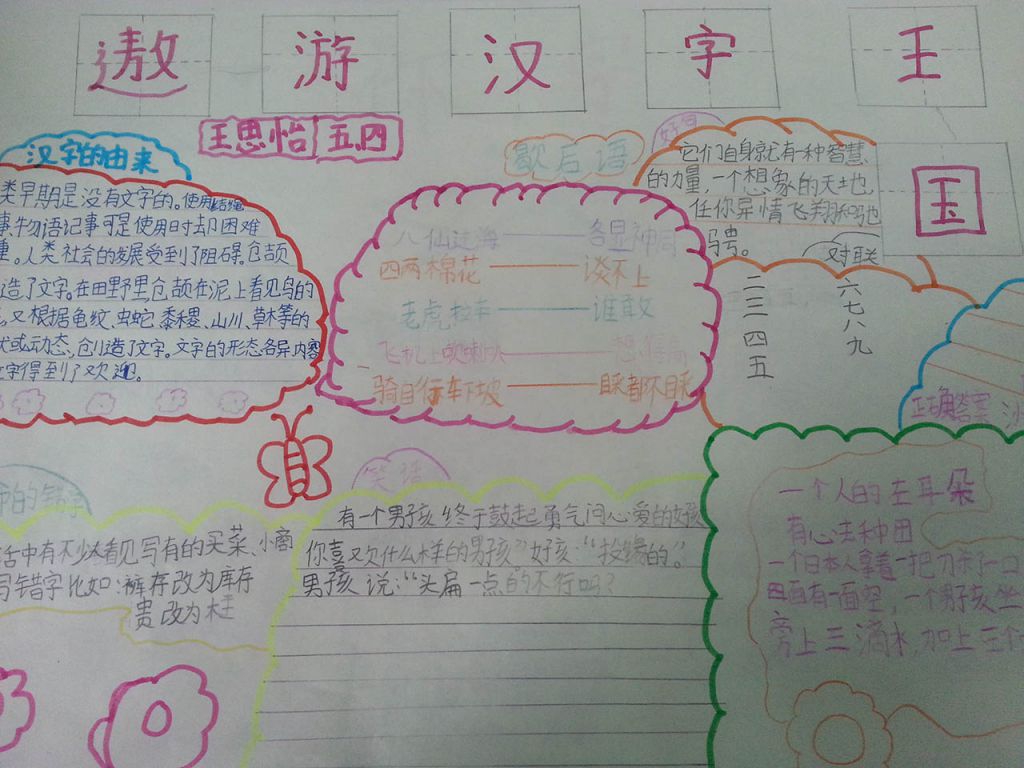 遨游汉字王
国
王思怡 五.四
汉字的由来
类早期是没有文字的。使用结绳
事、物语记事可是使用时却困难
重。人类社会的发展受到了阻碍,仓颉
造了文字。在田野里,仓颉在泥上看见鸟的
又根据龟纹、虫蛇、黍稷、山川、草木等的
状或动态,创造了文字。文字的形态各异内容
字得到了欢迎。
歇后语
八仙过海——各显神同
四两棉花——谈不上
老虎拉车——谁敢
飞机上吹喇叭——想得高
骑自行车下坡——睬都不睬
它们自身就有一种智慧
的力量,一个想象的天地,
任你异情飞翔和驰
骋。
对联
二三四五
六七八九
正确答案
的错字
活中有不少人看见写有的买菜、小商
写错字比如:裤存改为库存
贵改为柜
笑话
有一个男孩终于鼓起勇气问心爱的女孩
你喜欢什么样的男孩?女孩:“投缘的。”
男孩说:“头扁一点的不行吗?
一个人的左耳朵
有心去种田
一个日本人拿着一把刀杀了一口
四面有一面空,一个男孩坐
旁上三滴水,加上三个